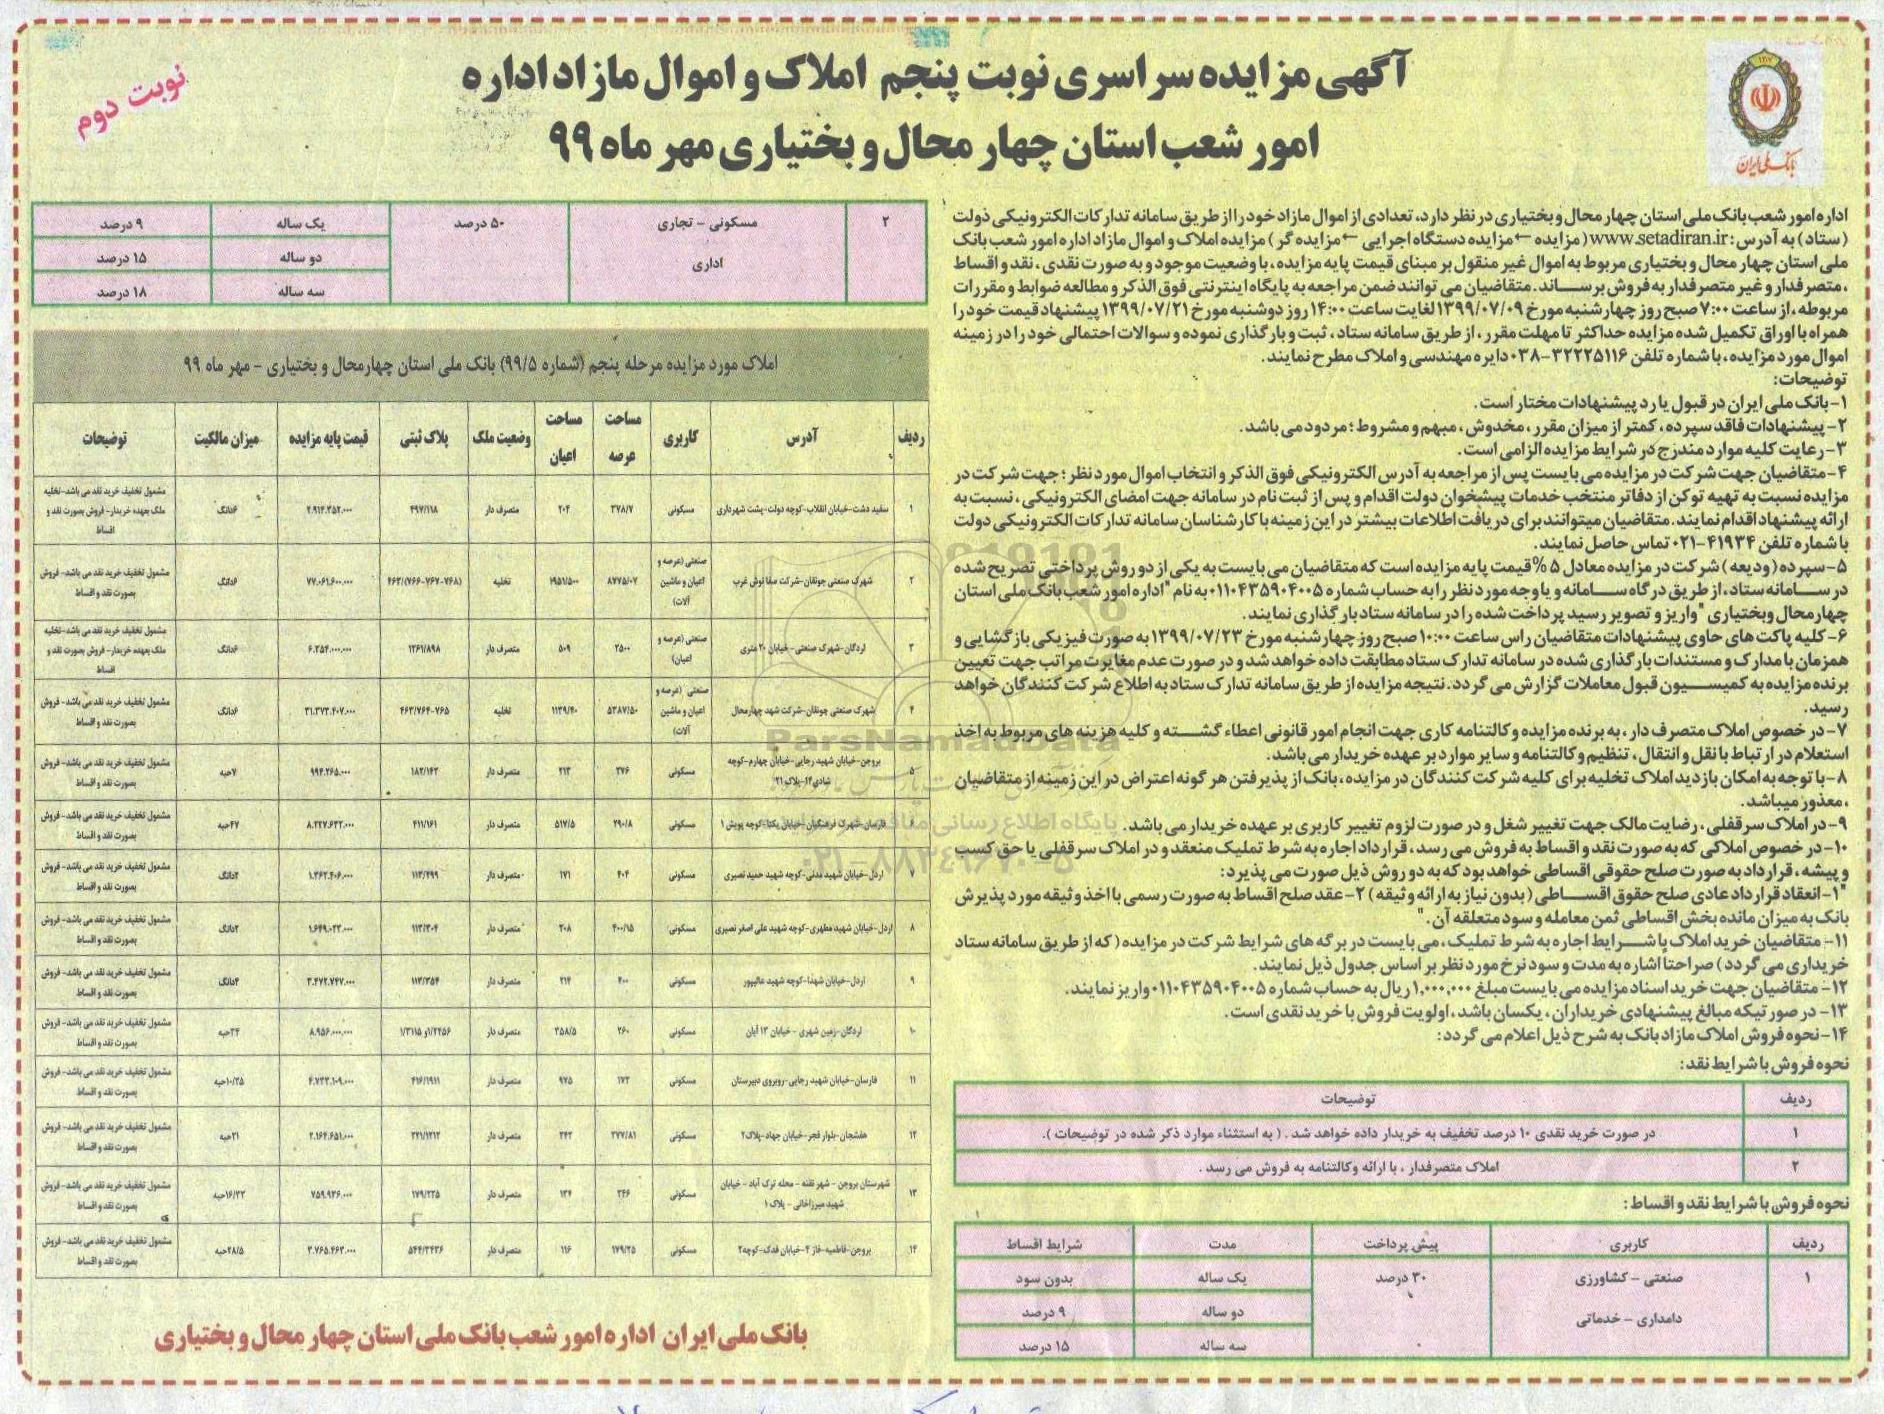 آگهی مزایده سراسری نوبت پنجم املاک و اموال مازاد اداره
امور شعب استان چهار محال و بختیاری مهر ماه ۹۹
نوبت دوم
بانک ملی ایران
اداره امور شعب بانک ملی استان چهار محال و بختیاری در نظر دارد، تعدادی از اموال مازاد خود را از طریق سامانه تدارکات الکترونیکی دولت
(ستاد) به آدرس: www.setadiran.ir (مزایده ← مزایده دستگاه اجرایی ← مزایده گر) مزایده املاک و اموال مازاد اداره امور شعب بانک
ملی استان چهار محال و بختیاری مربوط به اموال غیر منقول بر مبنای قیمت پایه مزایده، با وضعیت موجود و به صورت نقدی، نقد و اقساط
، متصرفدار و غیر متصرفدار به فروش برساند. متقاضیان می توانند ضمن مراجعه به پایگاه اینترنتی فوق الذکر و مطالعه ضوابط و مقررات
مربوطه، از ساعت ۷:۰۰ صبح روز چهارشنبه مورخ ۱۳۹۹/۰۷/۰۹ لغایت ساعت ۱۴:۰۰ روز دوشنبه مورخ ۱۳۹۹/۰۷/۲۱ پیشنهاد قیمت خود را
همراه با اوراق تکمیل شده مزایده حداکثر تا مهلت مقرر، از طریق سامانه ستاد، ثبت و بارگذاری نموده و سوالات احتمالی خود را در زمینه
اموال مورد مزایده، با شماره تلفن ۳۲۲۲۵۱۱۶-۰۳۸ دایره مهندسی و املاک مطرح نمایند.
توضیحات:
۱- بانک ملی ایران در قبول یا رد پیشنهادات مختار است.
۲- پیشنهادات فاقد سپرده، کمتر از میزان مقرر، مخدوش، مبهم و مشروط؛ مردود می باشد.
۳- رعایت کلیه موارد مندرج در شرایط مزایده الزامی است.
۴- متقاضیان جهت شرکت در مزایده می بایست پس از مراجعه به آدرس الکترونیکی فوق الذکر و انتخاب اموال مورد نظر؛ جهت شرکت در
مزایده نسبت به تهیه توکن از دفاتر منتخب خدمات پیشخوان دولت اقدام و پس از ثبت نام در سامانه جهت امضای الکترونیکی، نسبت به
ارائه پیشنهاد اقدام نمایند. متقاضیان میتوانند برای دریافت اطلاعات بیشتر در این زمینه با کارشناسان سامانه تدارکات الکترونیکی دولت
با شماره تلفن ۴۱۹۳۴-۰۲۱ تماس حاصل نمایند.
۵- سپرده (ودیعه) شرکت در مزایده معادل ۵% قیمت پایه مزایده است که متقاضیان می بایست به یکی از دو روش پرداختی تصریح شده
در سامانه ستاد، از طریق درگاه سامانه و یا وجه مورد نظر را به حساب شماره ۰۱۱۰۴۳۵۹۰۴۰۰۵ به نام "اداره امور شعب بانک ملی استان
چهارمحال وبختیاری" واریز و تصویر رسید پرداخت شده را در سامانه ستاد بارگذاری نمایند.
۶- کلیه پاکت های حاوی پیشنهادات متقاضیان راس ساعت ۱۰:۰۰ صبح روز چهارشنبه مورخ ۱۳۹۹/۰۷/۲۳ به صورت فیزیکی بازگشایی و
همزمان با مدارک و مستندات بارگذاری شده در سامانه تدارک ستاد مطابقت داده خواهد شد و در صورت عدم مغایرت مراتب جهت تعیین
برنده مزایده به کمیسیون قبول معاملات گزارش می گردد. نتیجه مزایده از طریق سامانه تدارک ستاد به اطلاع شرکت کنندگان خواهد
رسید.
۷- در خصوص املاک متصرف دار، به برنده مزایده وکالتنامه کاری جهت انجام امور قانونی اعطاء گشته و کلیه هزینه های مربوط به اخذ
استعلام در ارتباط با نقل و انتقال، تنظیم وکالتنامه و سایر موارد بر عهده خریدار می باشد.
۸- با توجه به امکان بازدید املاک تخلیه برای کلیه شرکت کنندگان در مزایده، بانک از پذیرفتن هر گونه اعتراض در این زمینه از متقاضیان
، معذور میباشد.
۹- در املاک سرقفلی، رضایت مالک جهت تغییر شغل و در صورت لزوم تغییر کاربری بر عهده خریدار می باشد.
۱۰- در خصوص املاکی که به صورت نقد و اقساط به فروش می رسد، قرارداد اجاره به شرط تملیک منعقد و در املاک سرقفلی یا حق کسب
و پیشه، قرارداد به صورت صلح حقوقی اقساطی خواهد بود که به دو روش ذیل صورت می پذیرد:
"۱- انعقاد قرارداد عادی صلح حقوق اقساطی (بدون نیاز به ارائه وثیقه) ۲- عقد صلح اقساط به صورت رسمی با اخذ وثیقه مورد پذیرش
بانک به میزان مانده بخش اقساطی ثمن معامله و سود متعلقه آن."
۱۱- متقاضیان خرید املاک با شرایط اجاره به شرط تملیک، می بایست در برگه های شرایط شرکت در مزایده (که از طریق سامانه ستاد
خریداری می گردد) صراحتا اشاره به مدت و سود نرخ مورد نظر بر اساس جدول ذیل نمایند.
۱۲- متقاضیان جهت خرید اسناد مزایده می بایست مبلغ ۱,۰۰۰,۰۰۰ ریال به حساب شماره ۰۱۱۰۴۳۵۹۰۴۰۰۵ واریز نمایند.
۱۳- در صورتیکه مبالغ پیشنهادی خریداران، یکسان باشد، اولویت فروش با خرید نقدی است.
۱۴- نحوه فروش املاک مازاد بانک به شرح ذیل اعلام می گردد:
نحوه فروش با شرایط نقد:
ردیف توضیحات
۱ در صورت خرید نقدی ۱۰ درصد تخفیف به خریدار داده خواهد شد. (به استثناء موارد ذکر شده در توضیحات).
۲ املاک متصرفدار، با ارائه وکالتنامه به فروش می رسد.
نحوه فروش با شرایط نقد و اقساط:
ردیف کاربری پیش پرداخت مدت شرایط اقساط
۱ صنعتی - کشاورزی ۳۰ درصد یک ساله بدون سود
دامداری - خدماتی دو ساله ۹ درصد
سه ساله ۱۵ درصد
۲ مسکونی - تجاری ۵۰ درصد یک ساله ۹ درصد
اداری دو ساله ۱۵ درصد
سه ساله ۱۸ درصد
املاک مورد مزایده مرحله پنجم (شماره ۹۹/۵) بانک ملی استان چهارمحال و بختیاری - مهر ماه ۹۹
ردیف آدرس کاربری مساحت عرصه مساحت اعیان وضعیت ملک پلاک ثبتی قیمت پایه مزایده میزان مالکیت توضیحات
۱ سفید دشت-خیابان انقلاب-کوچه دولت-پشت شهرداری مسکونی ۳۷۸/۷ ۲۰۴ متصرف دار ۴۹۷/۱۱۸ ۲.۹۱۴.۳۵۲.۰۰۰ ۶دانگ مشمول تخفیف خرید نقد می باشد-تخلیه ملک بعهده خریدار- فروش بصورت نقد و اقساط
۲ شهرک صنعتی جونقان-شرکت صفا نوش غرب صنعتی (عرصه و اعیان و ماشین آلات) ۸۷۷۵/۰۷ ۱۹۵۱/۵۰۰ تخلیه ۴۶۳/(۷۶۶-۷۶۷-۷۶۸) ۷۷.۰۶۱.۶۰۰.۰۰۰ ۶دانگ مشمول تخفیف خرید نقد می باشد- فروش بصورت نقد و اقساط
۳ لردگان-شهرک صنعتی- خیابان ۲۰ متری صنعتی (عرصه و اعیان) ۲۵۰۰ ۵۰۹ متصرف دار ۱۲۶۱/۸۹۸ ۶.۲۵۴.۰۰۰.۰۰۰ ۶دانگ مشمول تخفیف خرید نقد می باشد-تخلیه ملک بعهده خریدار- فروش بصورت نقد و اقساط
۴ شهرک صنعتی جونقان-شرکت شهد چهارمحال صنعتی (عرصه و اعیان و ماشین آلات) ۵۳۸۷/۵۰ ۱۱۳۹/۴۰ تخلیه ۴۶۳/۷۶۴-۷۶۵ ۳۱.۳۷۳.۴۰۷.۰۰۰ ۶دانگ مشمول تخفیف خرید نقد می باشد- فروش بصورت نقد و اقساط
۵ بروجن-خیابان شهید رجایی-خیابان چهارم-کوچه شادی۱۴-پلاک۲۱ مسکونی ۲۷۶ ۲۱۳ متصرف دار ۱۸۲/۱۴۲ ۹۹۴.۲۶۵.۰۰۰ ۷حبه مشمول تخفیف خرید نقد می باشد- فروش بصورت نقد و اقساط
۶ فارسان-شهرک فرهنگیان-خیابان یکتا-کوچه پویش۱ مسکونی ۲۹۰/۸ ۵۱۷/۵ متصرف دار ۴۱۱/۱۶۱ ۸.۲۲۷.۶۲۲.۰۰۰ ۴۷حبه مشمول تخفیف خرید نقد می باشد- فروش بصورت نقد و اقساط
۷ اردل-خیابان شهید مدنی-کوچه شهید حمید نصیری مسکونی ۴۰۴ ۱۷۱ متصرف دار ۱۱۳/۴۹۹ ۱.۳۶۲.۴۰۶.۰۰۰ ۲دانگ مشمول تخفیف خرید نقد می باشد- فروش بصورت نقد و اقساط
۸ اردل-خیابان شهید مطهری-کوچه شهید علی اصغر نصیری مسکونی ۴۰۰/۱۵ ۲۰۸ متصرف دار ۱۱۳/۳۰۴ ۱.۶۴۹.۰۲۲.۰۰۰ ۲دانگ مشمول تخفیف خرید نقد می باشد- فروش بصورت نقد و اقساط
۹ اردل-خیابان شهدا-کوچه شهید عالیپور مسکونی ۴۰۰ ۲۱۴ متصرف دار ۱۱۳/۳۵۴ ۳.۴۷۲.۷۴۷.۰۰۰ ۴دانگ مشمول تخفیف خرید نقد می باشد- فروش بصورت نقد و اقساط
۱۰ لردگان-زمین شهری - خیابان ۱۳ آبان مسکونی ۲۶۰ ۲۵۸/۵ متصرف دار ۱/۲۲۵۶و ۱/۳۱۱۵ ۸.۹۵۶.۰۰۰.۰۰۰ ۲۴حبه مشمول تخفیف خرید نقد می باشد- فروش بصورت نقد و اقساط
۱۱ فارسان-خیابان شهید رجایی-روبروی دبیرستان مسکونی ۱۷۳ ۹۷۵ متصرف دار ۴۱۶/۱۹۱۱ ۴.۷۳۳.۱۰۹.۰۰۰ ۱۰/۲۵حبه مشمول تخفیف خرید نقد می باشد- فروش بصورت نقد و اقساط
۱۲ هفشجان-بلوار فجر-خیابان جهاد-پلاک۲ مسکونی ۲۷۷/۸۱ ۲۴۲ متصرف دار ۲۲۱/۱۲۱۲ ۲.۱۶۴.۶۵۱.۰۰۰ ۲۱حبه مشمول تخفیف خرید نقد می باشد- فروش بصورت نقد و اقساط
۱۳ شهرستان بروجن - شهر نقنه - محله ترک آباد - خیابان شهید میرزاخانی - پلاک ۱ مسکونی ۲۴۶ ۱۲۴ متصرف دار ۱۷۹/۲۳۵ ۷۵۹.۹۳۶.۰۰۰ ۱۶/۲۲حبه مشمول تخفیف خرید نقد می باشد- فروش بصورت نقد و اقساط
۱۴ بروجن-فاطمیه-فاز ۲-خیابان فدک-کوچه۲ مسکونی ۱۷۹/۲۵ ۱۱۶ متصرف دار ۵۴۴/۳۴۳۶ ۳.۷۶۵.۴۶۲.۰۰۰ ۲۸/۵حبه مشمول تخفیف خرید نقد می باشد- فروش بصورت نقد و اقساط
بانک ملی ایران اداره امور شعب بانک ملی استان چهار محال و بختیاری
ParsNamadData
پایگاه اطلاع رسانی